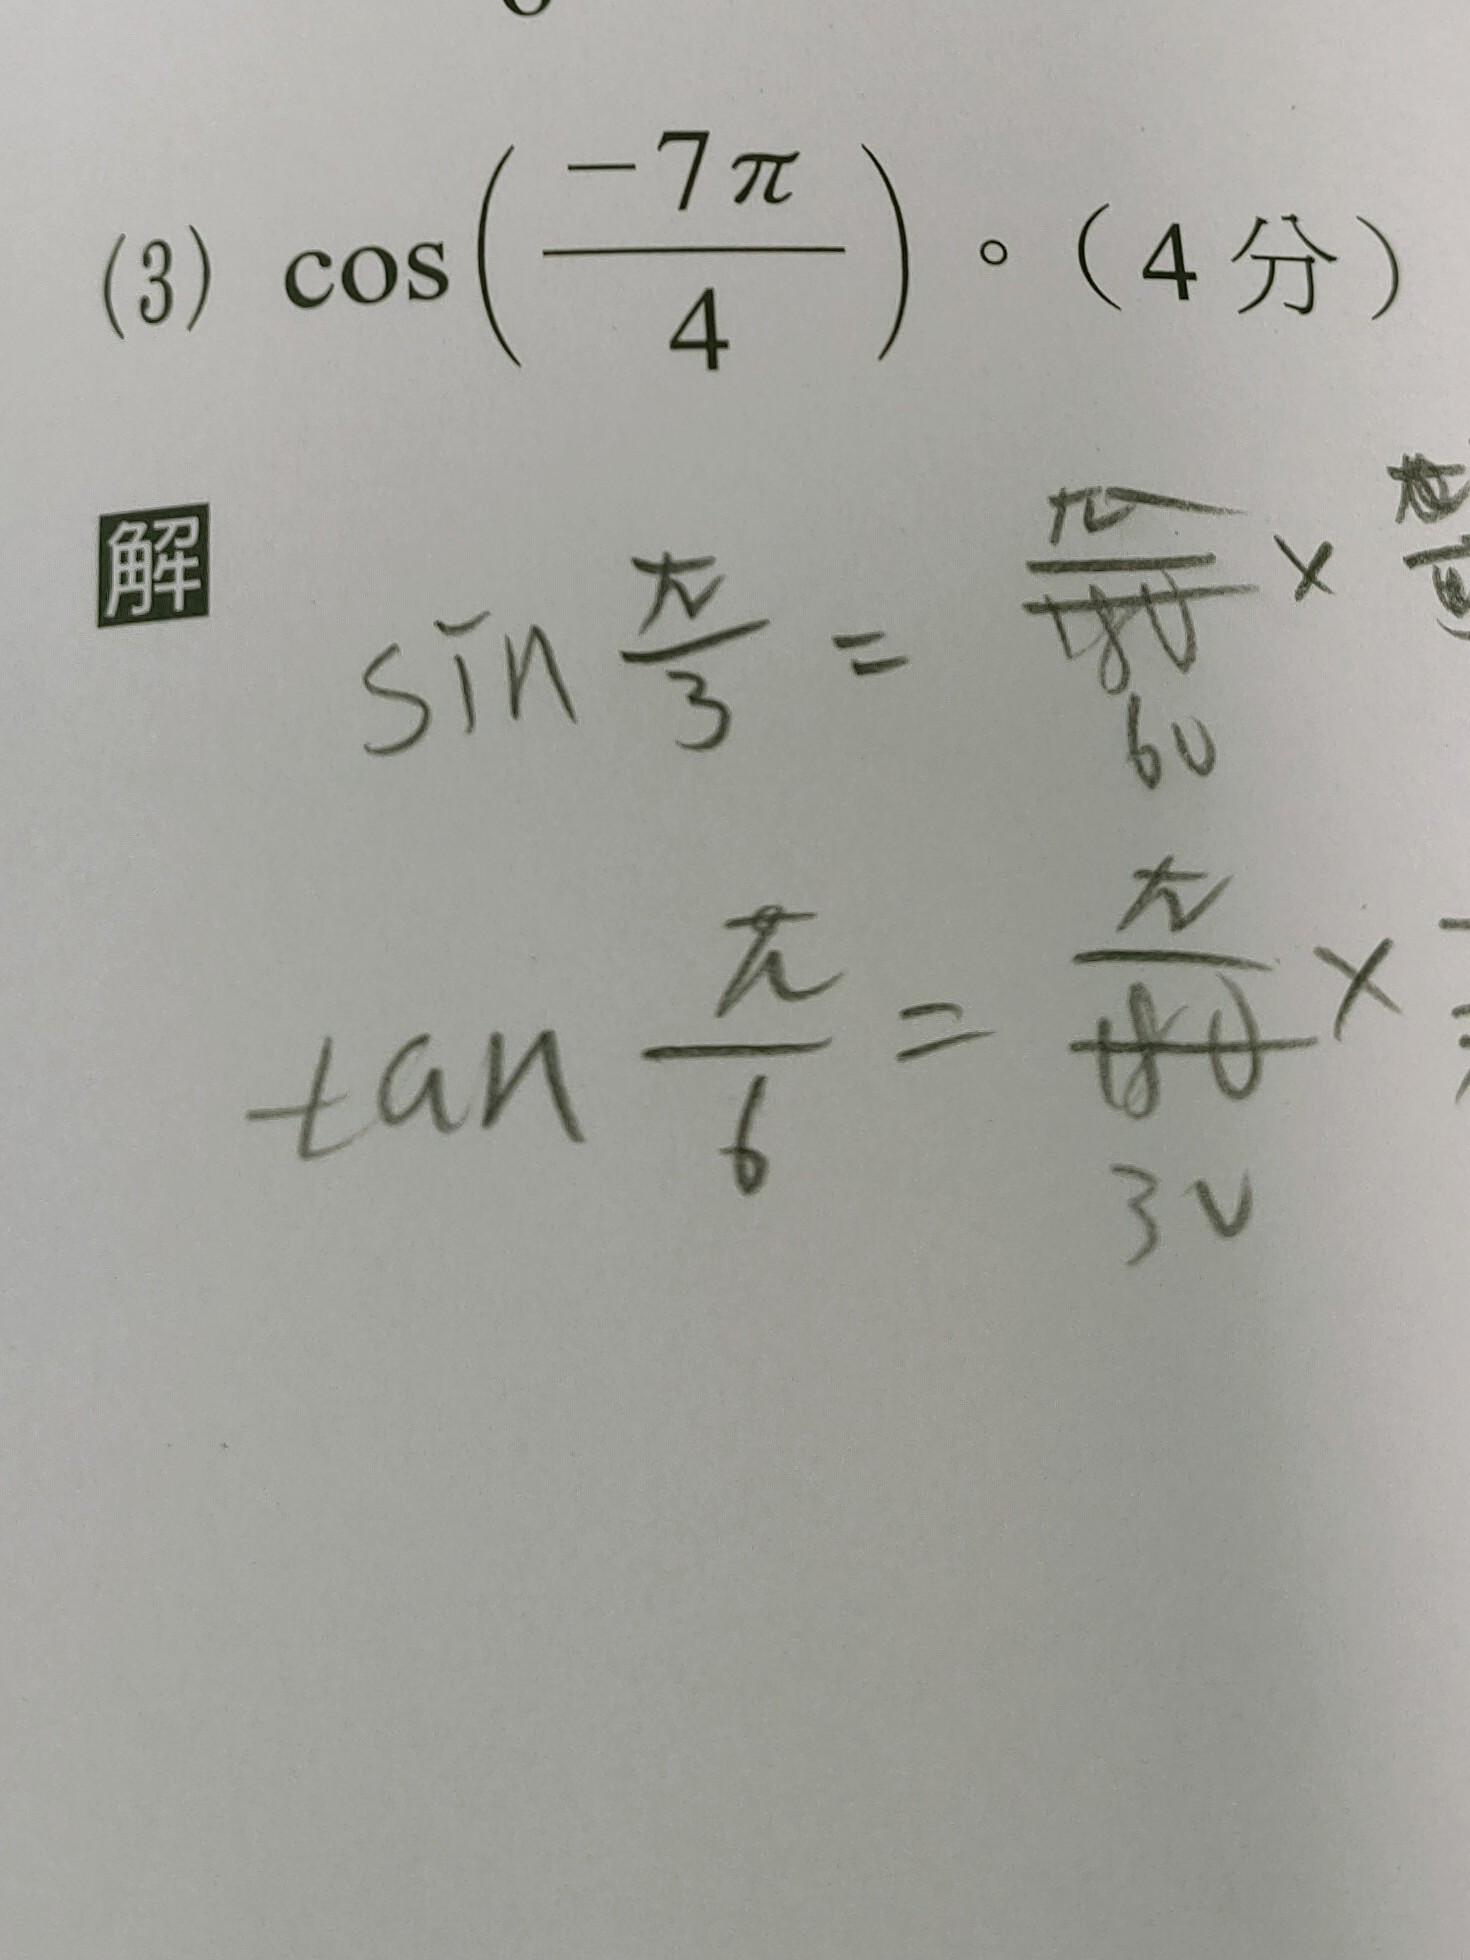 (3) cos(−7π/4)。(4分)
解
sin π/3 = π/180 ×
60
tan π/6 = π/180 ×
30